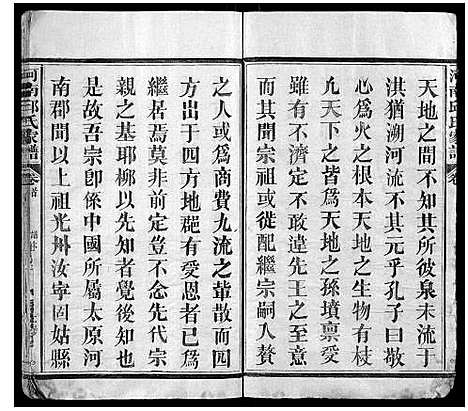 天地之間不知所彼泉未流于
洪猶溯河流其元乎孔子曰敬
心為火之根本天地生物有枝
凢天下之皆為天地之孫墳禀受
而且尊定不敢違先王之至意
而其開宗祖或從配繼宗嗣人贅
之人或為商賈九流之軰散而四
方出于四方地䓀有愛恩者已為
繼居焉莫非前定豈不念先代宗
親之基耶柳以先者覺後者知
是故吾宗卽係中國所屬太原河
南郡間以上祖光州汝寧固姑縣
河南邱氏家譜
卷首
河南邱氏家譜
卷